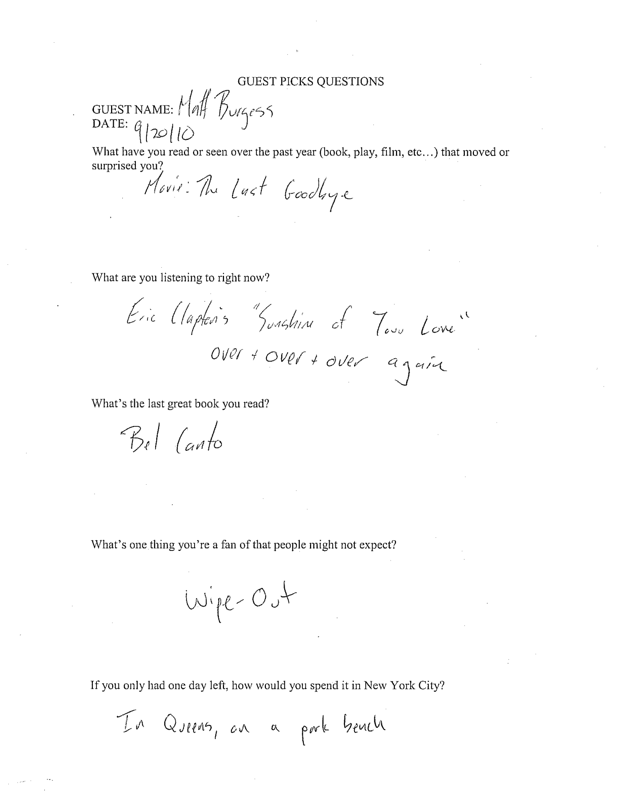 GUEST PICKS QUESTIONS
GUEST NAME: Matt Burgess
DATE: 9/20/10
What have you read or seen over the past year (book, play, film, etc…) that moved or
surprised you?
Movie: The Last Goodbye
What are you listening to right now?
Eric Clapton's "Sunshine of Your Love"
over + over + over again
What's the last great book you read?
Bel Canto
What's one thing you're a fan of that people might not expect?
Wipe-Out
If you only had one day left, how would you spend it in New York City?
In Queens, on a park bench